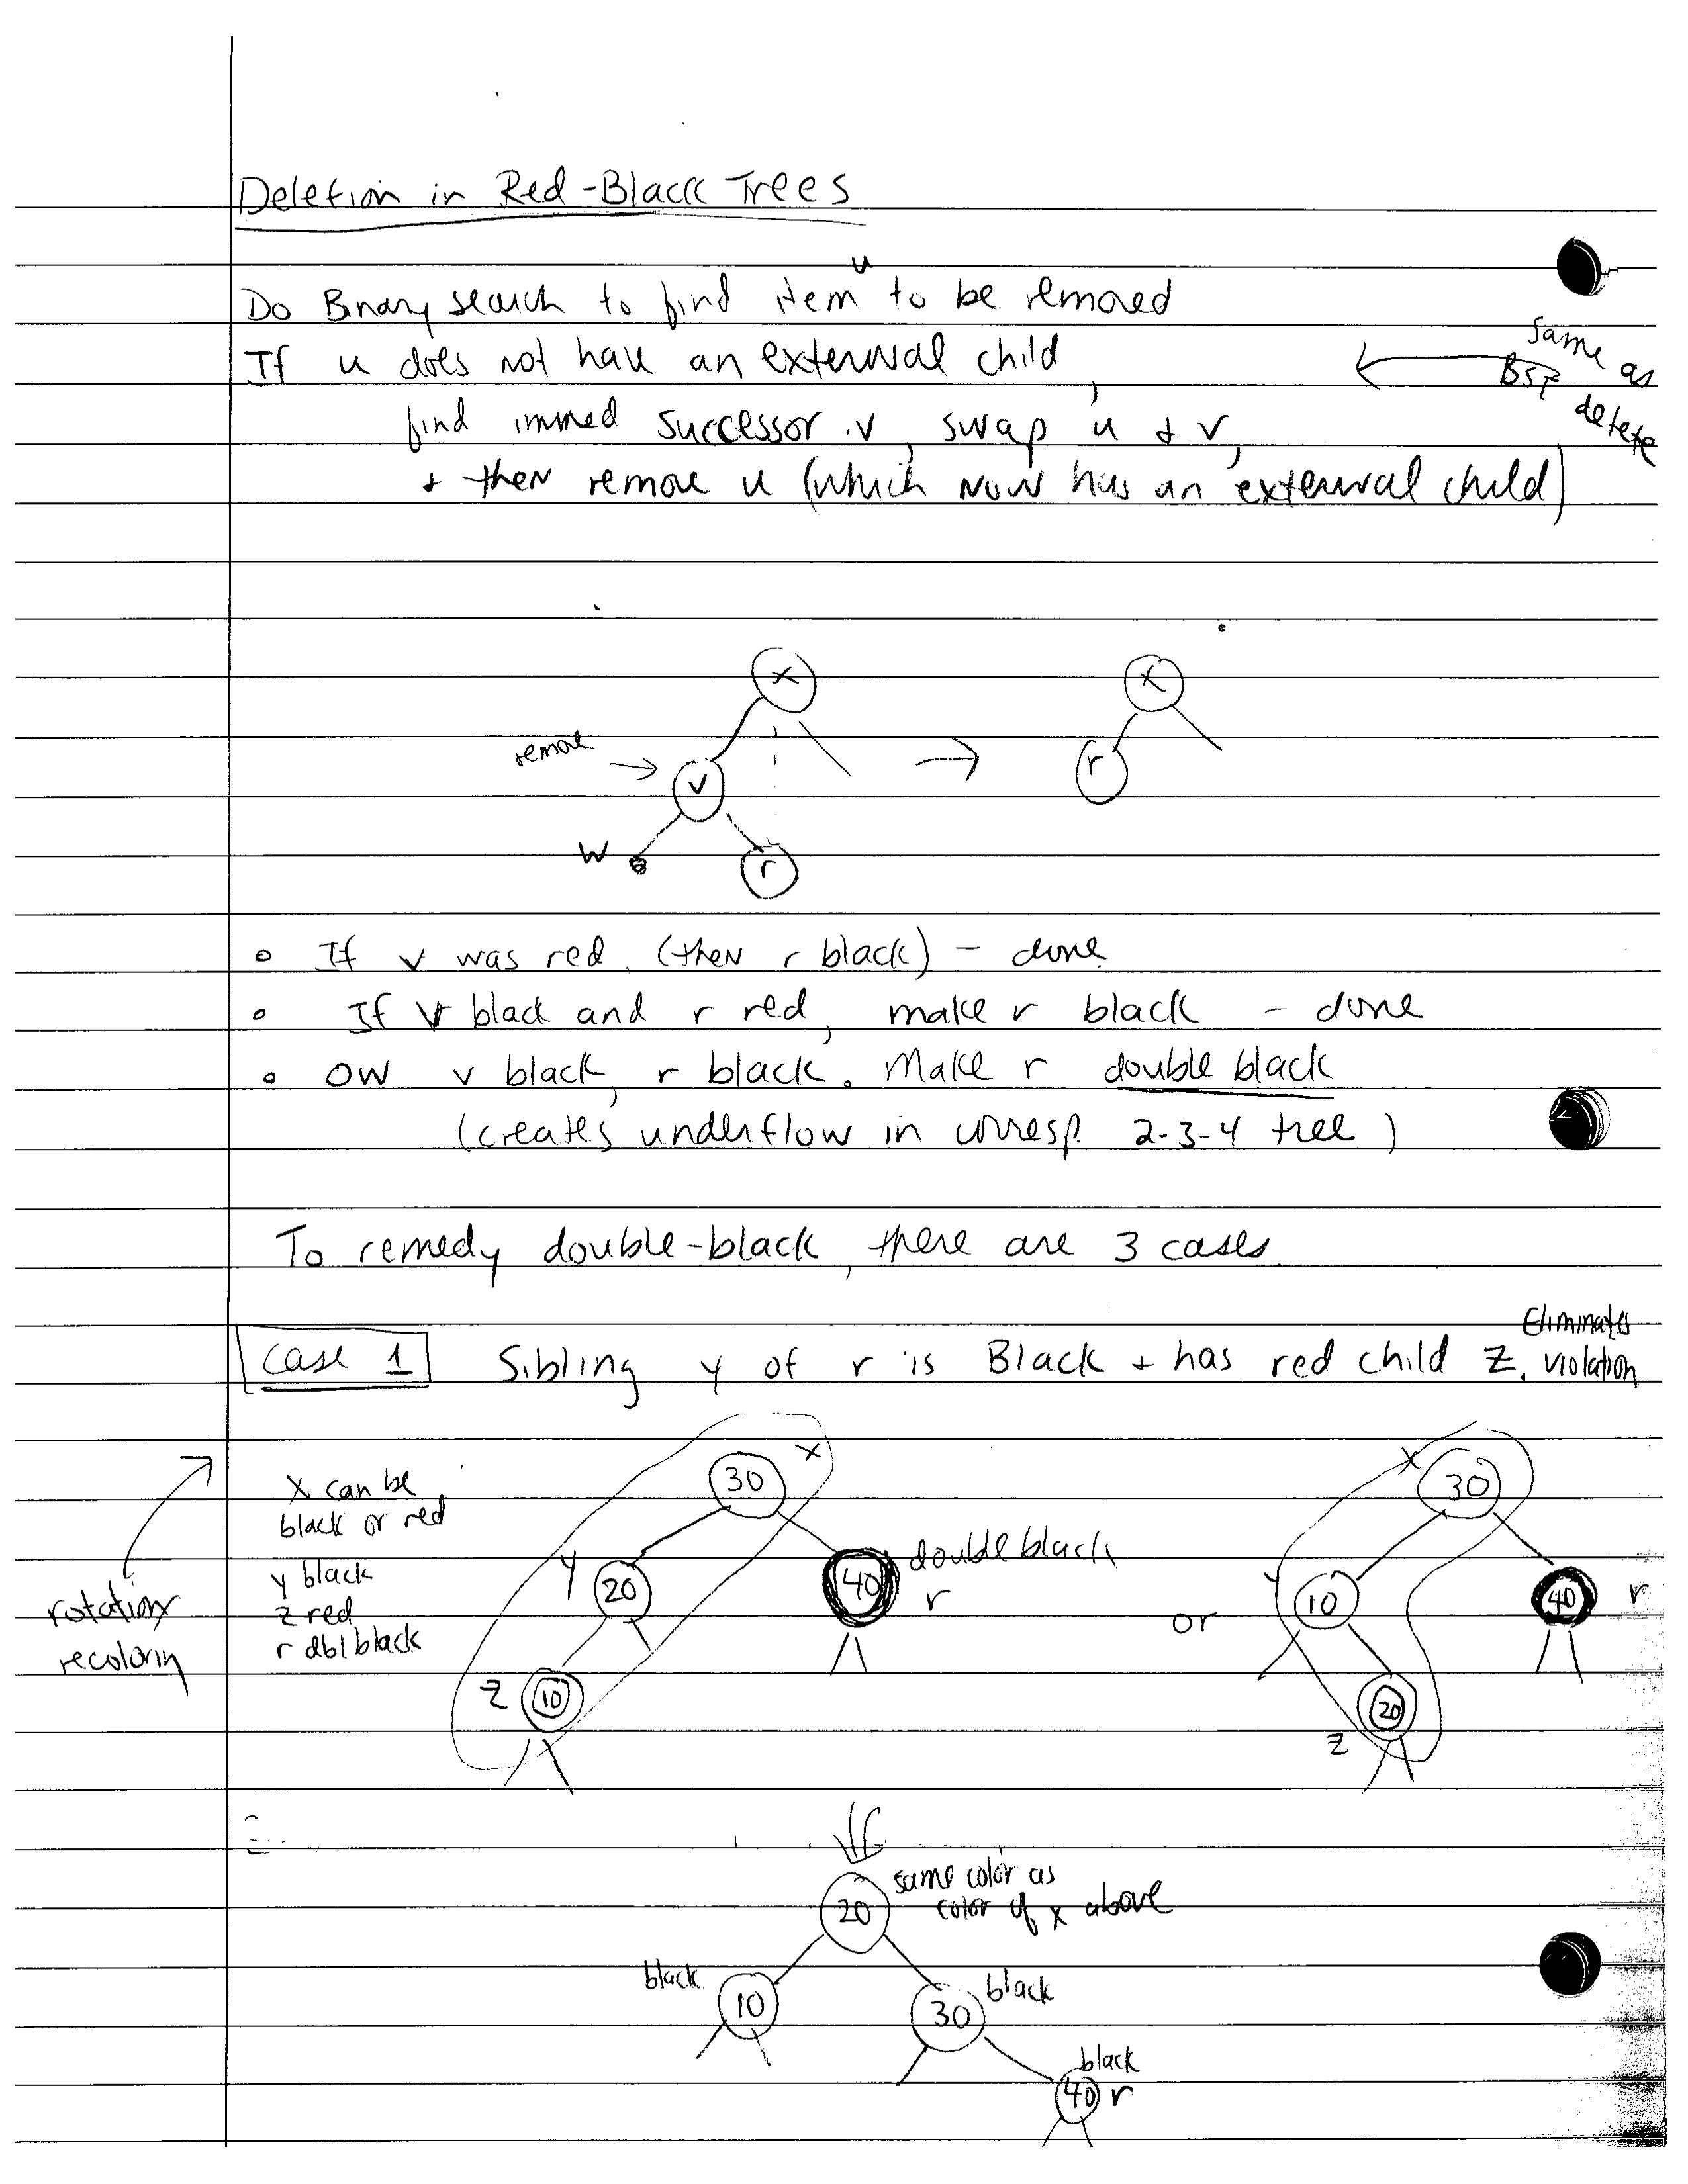 Deletion in Red-Black Trees
Do Binary search to find item u to be removed
If u does not have an external child,
find immed successor v, swap u + v,
+ then remove u (which now has an external child)
same as
BST
delete
x
x
remove
v
r
w
r
• If v was red (then r black) - done
• If v black and r red, make r black - done
• OW v black, r black. Make r double black
(creates underflow in corresp. 2-3-4 tree)
To remedy double-black, there are 3 cases
Case 1 Sibling y of r is Black + has red child z. Eliminates violation
rotation
recolorin
x can be
black or red
y black
z red
r dbl black
x
30
y
20
40
double black
r
z
10
or
x
30
y
10
40
r
20
z
20
same color as
color of x above
black
10
30
black
black
40 r